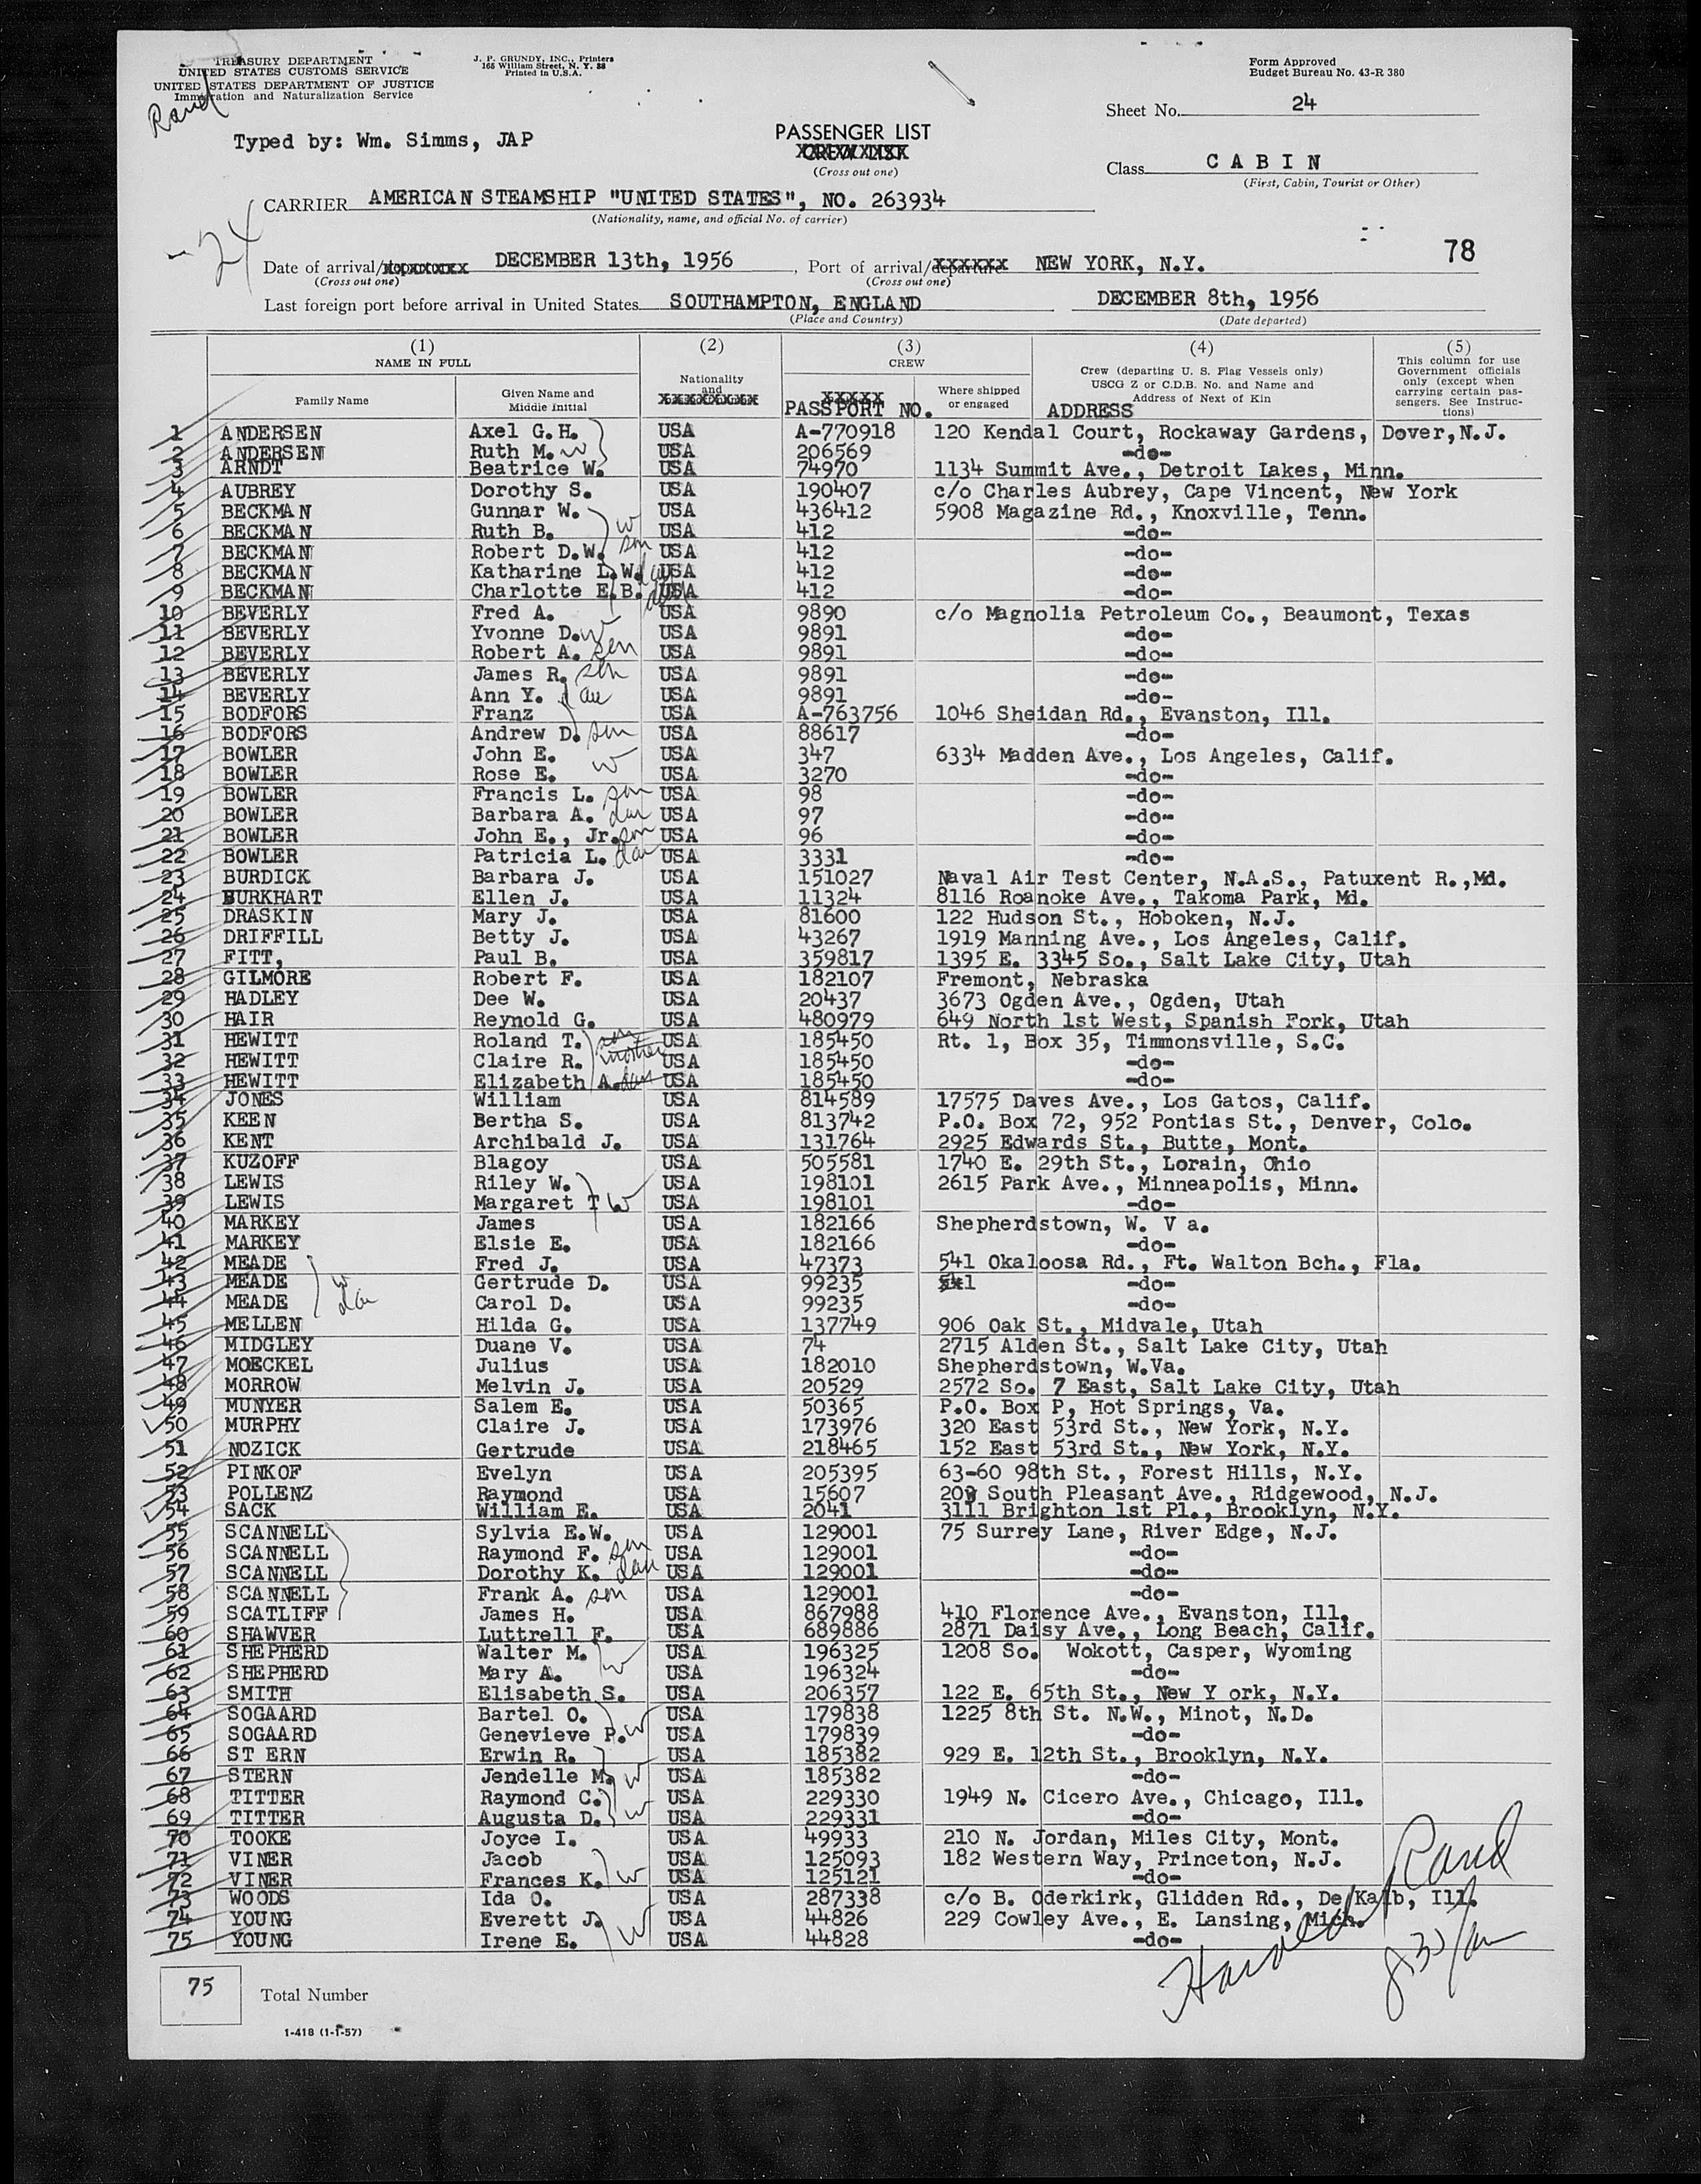 TREASURY DEPARTMENT
UNITED STATES CUSTOMS SERVICE
UNITED STATES DEPARTMENT OF JUSTICE
Immigration and Naturalization Service
J. P. GRUNDY, INC., Printers
165 William Street, N. Y. 38
Printed in U.S.A.
Form Approved
Budget Bureau No. 43-R 380
Rand
Sheet No. 24
Typed by: Wm. Simms, JAP
PASSENGER LIST
CREW LIST
(Cross out one)
Class CABIN
(First, Cabin, Tourist or Other)
CARRIER AMERICAN STEAMSHIP "UNITED STATES", NO. 263934
(Nationality, name, and official No. of carrier)
24
78
Date of arrival/ DECEMBER 13th, 1956, Port of arrival/departure NEW YORK, N.Y.
(Cross out one) (Cross out one)
Last foreign port before arrival in United States SOUTHAMPTON, ENGLAND DECEMBER 8th, 1956
(Place and Country) (Date departed)
(1) NAME IN FULL
Family Name
Given Name and Middle Initial
(2)
Nationality and
(3)
CREW
PASSPORT NO.
Where shipped or engaged
(4)
Crew (departing U. S. Flag Vessels only)
USCG Z or C.D.B. No. and Name and
Address of Next of Kin
ADDRESS
(5)
This column for use Government officials only (except when carrying certain passengers. See Instructions)
1 ANDERSEN Axel G.H. USA A-770918 120 Kendal Court, Rockaway Gardens, Dover,N.J.
2 ANDERSEN Ruth M. w USA 206569 -do-
3 ARNDT Beatrice W. USA 74970 1134 Summit Ave., Detroit Lakes, Minn.
4 AUBREY Dorothy S. USA 190407 c/o Charles Aubrey, Cape Vincent, New York
5 BECKMAN Gunnar W. USA 436412 5908 Magazine Rd., Knoxville, Tenn.
6 BECKMAN Ruth B. w USA 412 -do-
7 BECKMAN Robert D.W. son USA 412 -do-
8 BECKMAN Katharine L.W. dau USA 412 -do-
9 BECKMAN Charlotte E.B. dau USA 412 -do-
10 BEVERLY Fred A. USA 9890 c/o Magnolia Petroleum Co., Beaumont, Texas
11 BEVERLY Yvonne D. w USA 9891 -do-
12 BEVERLY Robert A. son USA 9891 -do-
13 BEVERLY James R. son USA 9891 -do-
14 BEVERLY Ann Y. dau USA 9891 -do-
15 BODFORS Franz USA A-763756 1046 Sheidan Rd., Evanston, Ill.
16 BODFORS Andrew D. son USA 88617 -do-
17 BOWLER John E. USA 347 6334 Madden Ave., Los Angeles, Calif.
18 BOWLER Rose E. w USA 3270 -do-
19 BOWLER Francis L. son USA 98 -do-
20 BOWLER Barbara A. dau USA 97 -do-
21 BOWLER John E., Jr. son USA 96 -do-
22 BOWLER Patricia L. dau USA 3331 -do-
23 BURDICK Barbara J. USA 151027 Naval Air Test Center, N.A.S., Patuxent R.,Md.
24 BURKHART Ellen J. USA 11324 8116 Roanoke Ave., Takoma Park, Md.
25 DRASKIN Mary J. USA 81600 122 Hudson St., Hoboken, N.J.
26 DRIFFILL Betty J. USA 43267 1919 Manning Ave., Los Angeles, Calif.
27 FITT, Paul B. USA 359817 1395 E. 3345 So., Salt Lake City, Utah
28 GILMORE Robert F. USA 182107 Fremont, Nebraska
29 HADLEY Dee W. USA 20437 3673 Ogden Ave., Ogden, Utah
30 HAIR Reynold G. USA 480979 649 North 1st West, Spanish Fork, Utah
31 HEWITT Roland T. son USA 185450 Rt. 1, Box 35, Timmonsville, S.C.
32 HEWITT Claire R. mother USA 185450 -do-
33 HEWITT Elizabeth A. dau USA 185450 -do-
34 JONES William USA 814589 17575 Daves Ave., Los Gatos, Calif.
35 KEEN Bertha S. USA 813742 P.O. Box 72, 952 Pontias St., Denver, Colo.
36 KENT Archibald J. USA 131764 2925 Edwards St., Butte, Mont.
37 KUZOFF Blagoy USA 505581 1740 E. 29th St., Lorain, Ohio
38 LEWIS Riley W. USA 198101 2615 Park Ave., Minneapolis, Minn.
39 LEWIS Margaret T w USA 198101 -do-
40 MARKEY James USA 182166 Shepherdstown, W. V a.
41 MARKEY Elsie E. USA 182166 -do-
42 MEADE Fred J. USA 47373 541 Okaloosa Rd., Ft. Walton Bch., Fla.
43 MEADE w Gertrude D. USA 99235 541 -do-
44 MEADE dau Carol D. USA 99235 -do-
45 MELLEN Hilda G. USA 137749 906 Oak St., Midvale, Utah
46 MIDGLEY Duane V. USA 74 2715 Alden St., Salt Lake City, Utah
47 MOECKEL Julius USA 182010 Shepherdstown, W.Va.
48 MORROW Melvin J. USA 20529 2572 So. 7 East, Salt Lake City, Utah
49 MUNYER Salem E. USA 50365 P.O. Box P, Hot Springs, Va.
50 MURPHY Claire J. USA 173976 320 East 53rd St., New York, N.Y.
51 NOZICK Gertrude USA 218465 152 East 53rd St., New York, N.Y.
52 PINKOF Evelyn USA 205395 63-60 98th St., Forest Hills, N.Y.
53 POLLENZ Raymond USA 15607 South Pleasant Ave., Ridgewood, N.J.
54 SACK William E. USA 2041 3111 Brighton 1st Pl., Brooklyn, N.Y.
55 SCANNELL Sylvia E.W. USA 129001 75 Surrey Lane, River Edge, N.J.
56 SCANNELL Raymond F. son USA 129001 -do-
57 SCANNELL Dorothy K. dau USA 129001 -do-
58 SCANNELL Frank A. son USA 129001 -do-
59 SCATLIFF James H. USA 867988 410 Florence Ave., Evanston, Ill.
60 SHAWVER Luttrell F. USA 689886 2871 Daisy Ave., Long Beach, Calif.
61 SHEPHERD Walter M. USA 196325 1208 So. Wokott, Casper, Wyoming
62 SHEPHERD Mary A. w USA 196324 -do-
63 SMITH Elisabeth S. USA 206357 122 E. 65th St., New Y ork, N.Y.
64 SOGAARD Bartel O. USA 179838 1225 8th St. N.W., Minot, N.D.
65 SOGAARD Genevieve P. w USA 179839 -do-
66 ST ERN Erwin R. USA 185382 929 E. 12th St., Brooklyn, N.Y.
67 STERN Jendelle M. w USA 185382 -do-
68 TITTER Raymond C. USA 229330 1949 N. Cicero Ave., Chicago, Ill.
69 TITTER Augusta D. w USA 229331 -do-
70 TOOKE Joyce I. USA 49933 210 N. Jordan, Miles City, Mont.
71 VINER Jacob USA 125093 182 Western Way, Princeton, N.J.
72 VINER Frances K. w USA 125121 -do-
73 WOODS Ida O. USA 287338 c/o B. Oderkirk, Glidden Rd., De Kalb, Ill.
74 YOUNG Everett J. USA 44826 229 Cowley Ave., E. Lansing, Mich.
75 YOUNG Irene E. w USA 44828 -do-
Harold Rand
75 Total Number
1-418 (1-1-57)